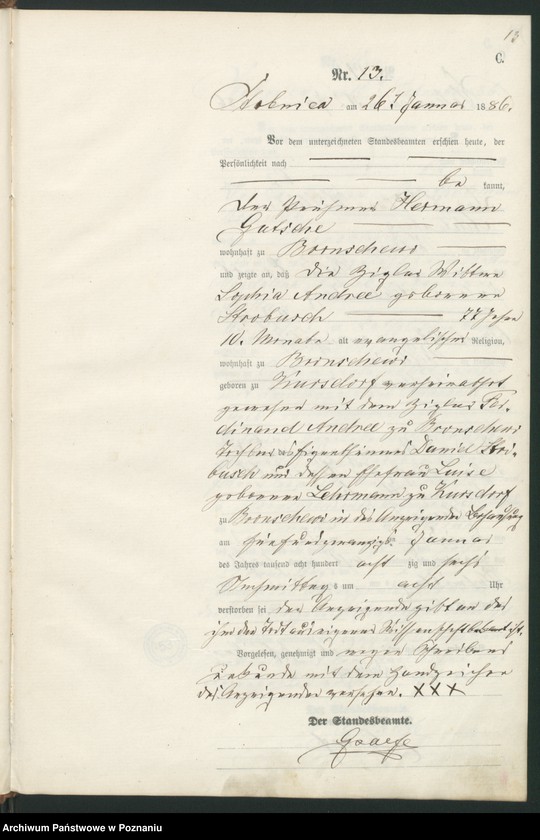 13
C.
Nr. 13.
Stobnica am 26t Januar 1886.
Vor dem unterzeichneten Standesbeamten erschien heute, der
Persönlichkeit nach
be kannt,
der Hermann
Gatsche
wohnhaft zu Bornschews
und zeigte an, daß die Wittwe
Sophia Andree geborene
Strobusch 77 Jahre
10. Monate alt evangelischer Religion,
wohnhaft zu Bornschews
geboren zu Kursdorf verheirathet
gewesen mit dem Fer-
dinand Andree zu Bornschews
Tochter des Eigenthümers Daniel Stro-
busch und dessen Ehefrau Luise
geborene Lehrmann zu Kursdorf
zu Bornschews in des Anzeigenden Behausung
am fünfundzwanzigsten Januar
des Jahres tausend acht hundert acht zig und sechs
Nachmittags um acht Uhr
verstorben sei der Anzeigende gibt an daß
ihm der Tod aus eigener Wissenschaft bekannt ist.
Vorgelesen, genehmigt und wegen Schreibens
unkunde mit dem Handzeichen
des Anzeigenden versehen. XXX
Der Standesbeamte.
Graefe
Archiwum Państwowe w Poznaniu